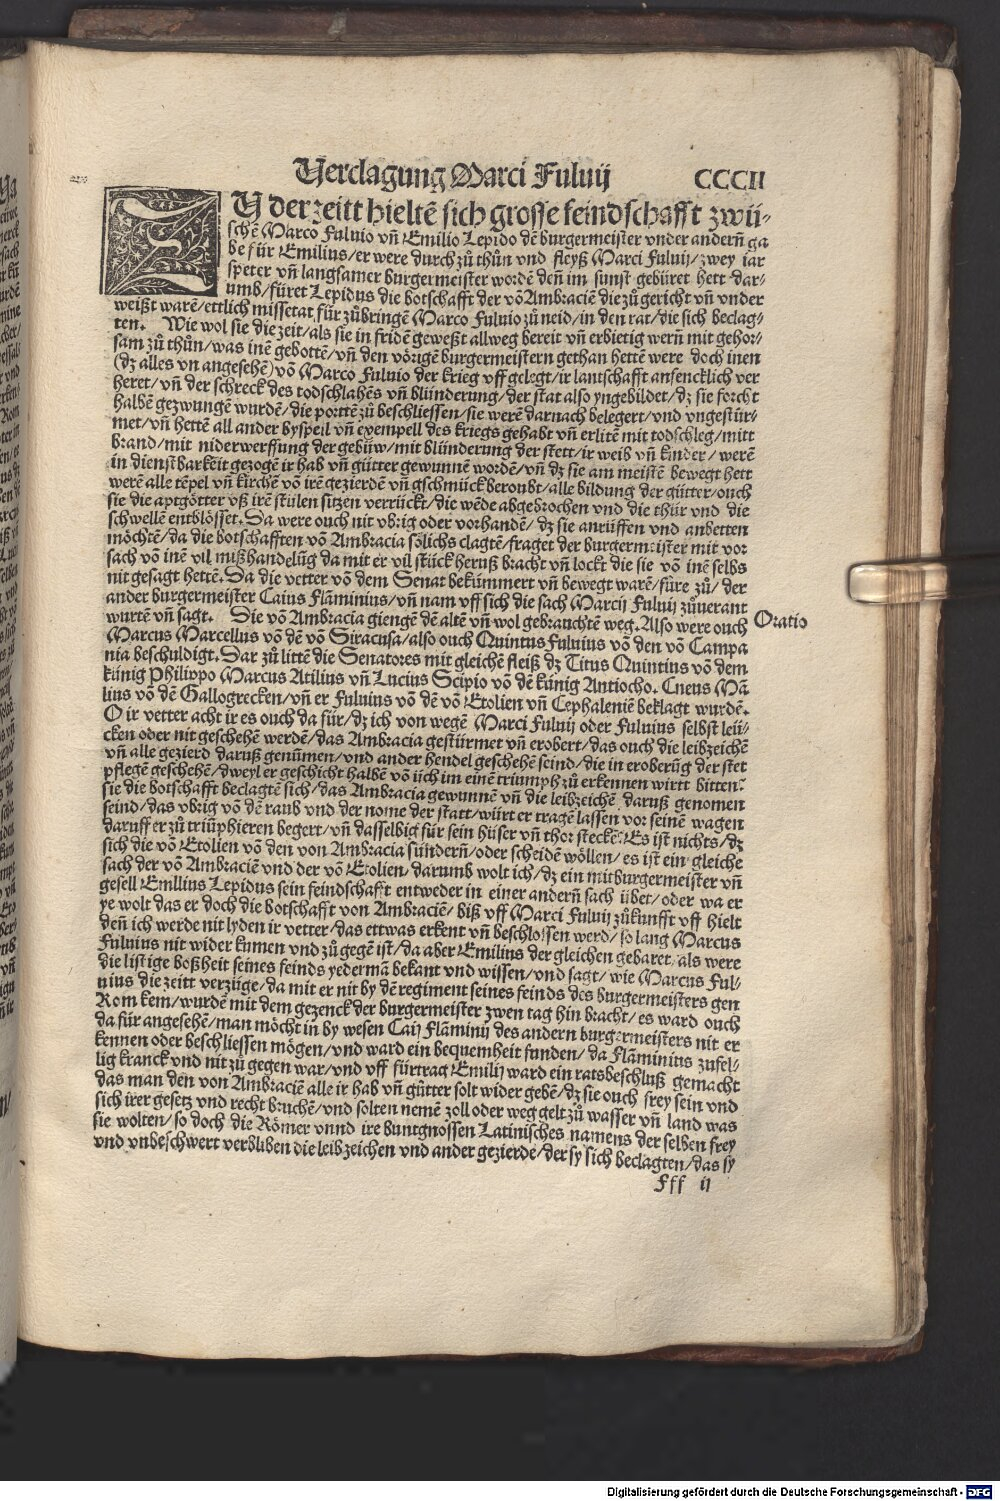 Verclagung Marci Fuluij CCCII
ZŮ der zeitt hieltē sich grosse feindschafft zwü-
schē Marco Fuluio vñ Emilio Lepido dē burgermeister vnder anderñ ga
be für Emilius/er were durch zů thůn vnd fleyß Marci Fuluij/zwey iar
speter vñ langsamer burgermeister wordē deñ im sunst gebüret hett dar-
umb/füret Lepidus die botschafft der võ Ambraciē die zů gericht vñ vnder
weißt warē/ettlich missetat für zůbringē Marco Fuluio zů neid/in den rat/die sich beclag-
ten. Wie wol sie die zeit/als sie in fridē geweßt allweg bereit vñ erbietig werñ mit gehor-
sam zů thůn/was inē gebottē/vñ den vörigē burgermeistern gethan hettē were doch inen
(dz alles vn angesehē) võ Marco Fuluio der krieg vff gelegt/ir lantschafft anfencklich ver
heret/vñ der schreck des todschlahēs vñ blünderung/der stat also yngebildet/dz sie forcht
halbē gezwungē wurdē/die porttē zů beschliessen/sie werē darnach belegert/vnd vngestür-
met/vñ hettē all ander byspeil vñ exempell des kriegs gehabt vñ erlitē mit todschleg/mitt
brand/mit niderwerffung der gebüw/mit blünderung der stett/ir weib vñ kinder/werē
in dienstbarkeit gezogē ir hab vñ gütter gewunnē wordē/vñ dz sie am meistē bewegt hett
werē alle tēpel vñ kirchē võ irē gezierdē vñ gschmück beroubt/alle bildung der götter/ouch
sie die aptgötter vß irē stůlen sitzen verrückt/die wēde abgebrochen vnd die thür vnd die
schwellē enthlösset. Da were ouch nit vbrig oder vorhandē/dz sie anrüffen vnd anbetten
möchtē/da die botschafften võ Ambracia sölichs clagtē/fraget der burgermeister mit vor
sach võ inē vil mißhandelūg da mit er vil stück heruß bracht vñ lockt die sie võ inē selbs
nit gesagt hettē. Da die vetter võ dem Senat bekümmert vñ bewegt warē/füre zů/der
ander burgermeister Caius Flāminius/vñ nam vff sich die sach Marcij Fuluij zůuerant
wurtē vñ sagt. Die võ Ambracia giengē dē altē vñ wol gebrauchtē weg. Also were ouch Oratio
Marcus Marcellus võ dē võ Siracusa/also ouch Quintus Fuluius võ den võ Campa
nia beschuldigt. Dar zů littē die Senatores mit gleichē fleiß dz Titus Quintius võ dem
künig Philippo Marcus Atilius vñ Lucius Scipio võ dē künig Antiocho. Cneus Mā
lius võ dē Gallogrecken/vñ er Fuluius võ dē võ Etolien vñ Cephaleniē beklagt wurdē.
O ir vetter acht ir es ouch da für/dz ich von wegē Marci Fuluij oder Fuluius selbst leü-
cken oder nit geschehē werdē/das Ambracia gestürmet vñ erobert/das ouch die leibzeichē
vñ alle gezierd daruß genūmen/vnd ander hendel geschehē seind/die in eroberūg der stet
pflegē geschehē/dweyl er geschicht halbē võ üch im einē triumph zů erkennen wirtt bitten?
sie die botschafft beclagtē sich/das Ambracia gewunnē vñ die leibzeichē daruß genomen
seind/das vbrig võ dē raub vnd der nome der statt/würt er tragē lassen vor seinē wagen
daruff er zů triūphieren begert/vñ dasselbig für sein hüser vñ thor steckē. Es ist nichts/dz
sich die võ Etolien võ den von Ambracia sündern̄/oder scheidē wöllen/es ist ein gleiche
sach der võ Ambraciē vnd der võ Etolien/darumb wolt ich/dz ein mitburgermeister vñ
gesell Emilius Lepidus sein feindschafft entweder in einer andern̄ sach übet/oder wa er
ye wolt das er doch die botschafft von Ambraciē/biß vff Marci Fuluij zůkunfft vff hielt
deñ ich werde nit lyden ir vetter/das ettwas erkent vñ beschlossen werd/so lang Marcus
Fuluius nit wider kumen vnd zů gegē ist/da aber Emilius der gleichen gebaret/als were
die listige boßheit seines feinds yedermā bekant vnd wissen/vnd sagt/wie Marcus Ful-
uius die zeitt verzüge/da mit er nit by dē regiment seines feinds des burgermeisters gen
Rom kem/wurdē mit dem gezenck der burgermeister zwen tag hin bracht/es ward ouch
da für angesehē/man möcht in by wesen Caij Flāminij des andern burgermeisters nit er
kennen oder beschliessen mögen/vnd ward ein bequemheit funden/da Flāminius zufel-
lig kranck vnd nit zů gegen war/vnd vff fürtrag Emilij ward ein ratsbeschluß gemacht
das man den von Ambraciē alle ir hab vñ gütter solt wider gebē/dz sie ouch frey sein vnd
sich irer gesetz vnd recht bruchē/vnd solten nemē zoll oder weg gelt zů wasser vñ land was
sie wolten/so doch die Römer vnnd ire buntgnossen Latinisches namens der selben frey
vnd vnbeschwert verbliben die leibzeichen vnd ander gezierde/der sy sich beclagten/das sy
Fff ij
Digitalisierung gefördert durch die Deutsche Forschungsgemeinschaft - DFG